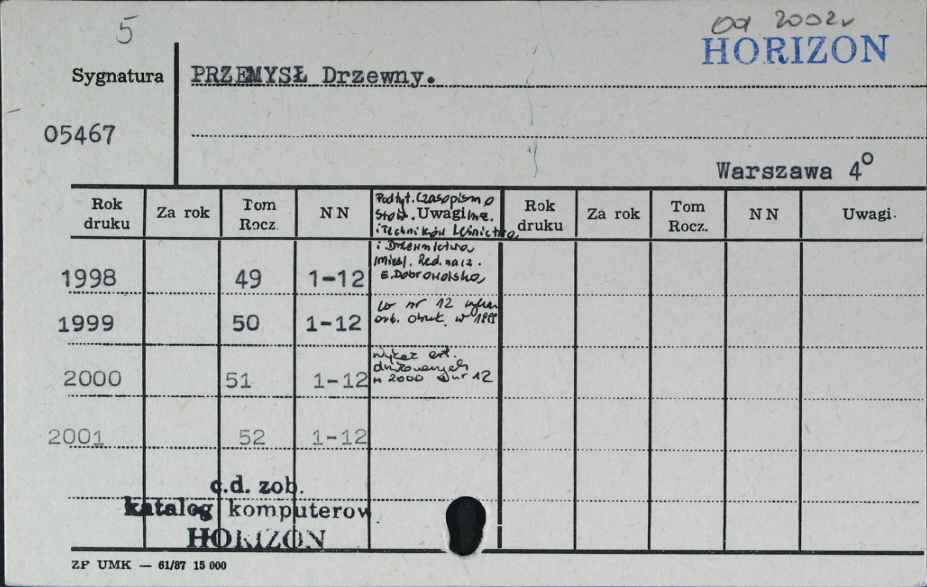 5
od 2002r
HORIZON
Sygnatura
PRZEMYSŁ Drzewny.
05467
Warszawa 4°
Rok druku Za rok Tom Rocz. NN Uwagi Rok druku Za rok Tom Rocz. NN Uwagi
Podtyt. Czasopismo
Stow. Inż.
i Techników Leśnictwa
i Drzewnictwa
mies. Red. nacz.
E. Dobrowolska
1998 49 1-12
1999 50 1-12
w nr 12
art. w 1999
2000 51 1-12
wykaz art.
drukowanych
w 2000 w nr 12
2001 52 1-12
c.d. zob.
katalog komputerow
HORIZON
ZP UMK — 61/87 15 000